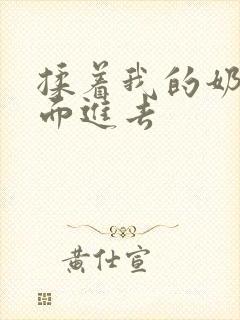 揉着我的奶
而進去
黄仕宣